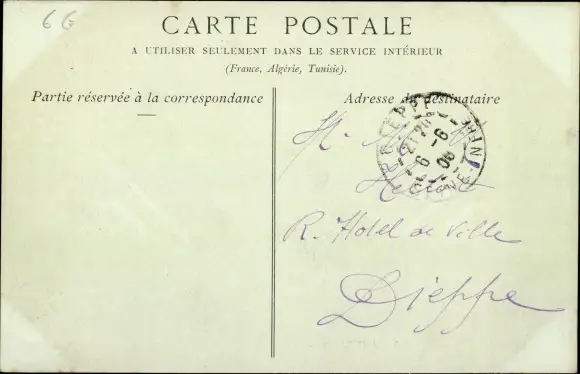 6 G
CARTE POSTALE
A UTILISER SEULEMENT DANS LE SERVICE INTÉRIEUR
(France, Algérie, Tunisie).
Partie réservée à la correspondance
Adresse du destinataire
DIEPPE
6 - 6
06
R. Hotel de Ville
Dieppe